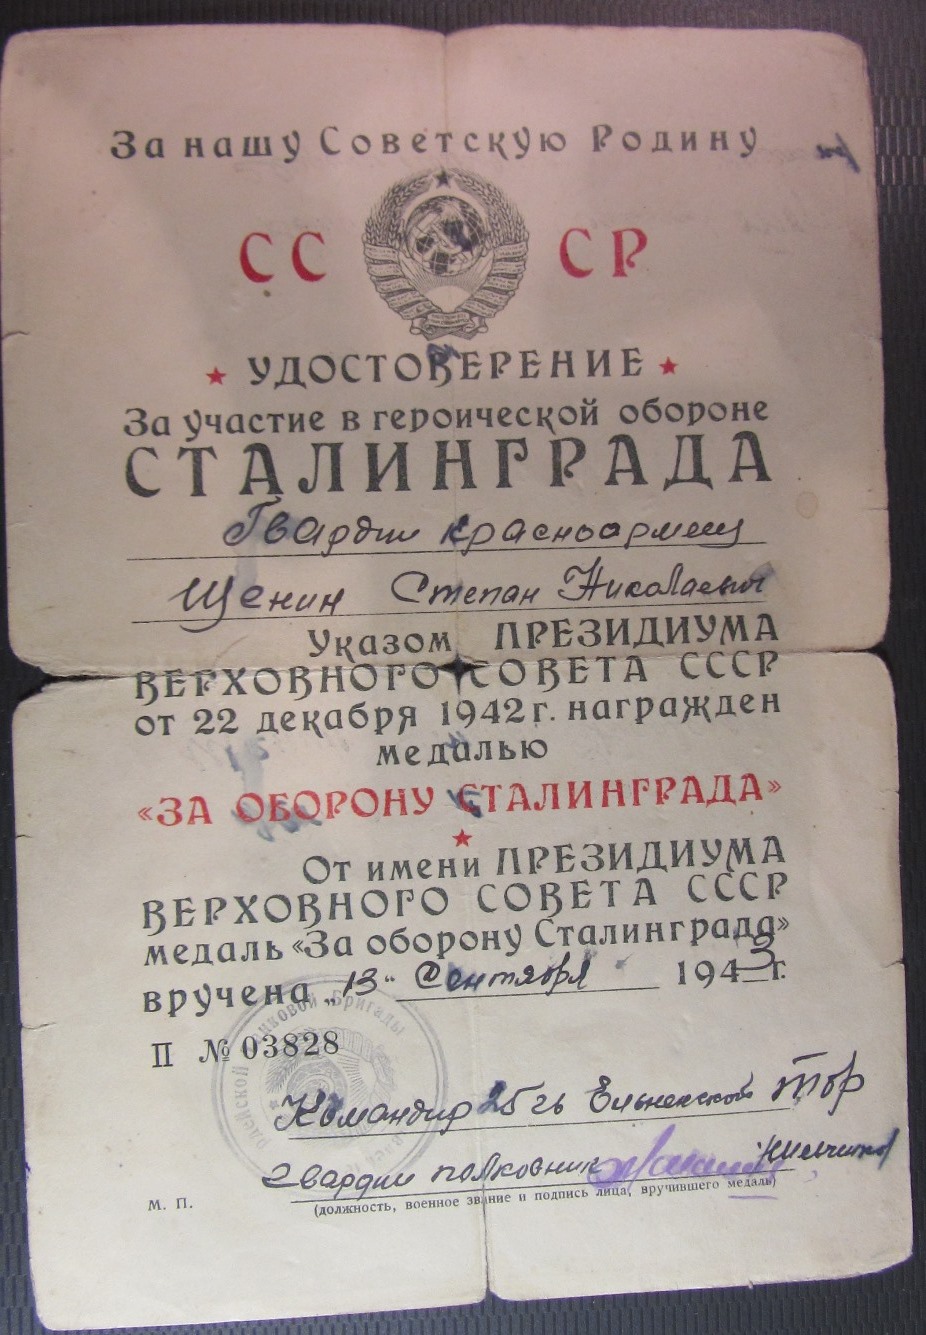 За нашу Советскую Родину
СС СР
УДОСТОВЕРЕНИЕ
За участие в героической обороне
СТАЛИНГРАДА
Гвардии красноармеец
Щенин Степан Николаевич
Указом ПРЕЗИДИУМА
ВЕРХОВНОГО СОВЕТА СССР
от 22 декабря 1942 г. награжден
медалью
«ЗА ОБОРОНУ СТАЛИНГРАДА»
От имени ПРЕЗИДИУМА
ВЕРХОВНОГО СОВЕТА СССР
медаль «За оборону Сталинграда»
вручена „13" Сентября 1943 г.
П № 03828
Командир 25 гв Ельненской Тбр
гвардии полковник
М. П.
(должность, военное звание и подпись лица, вручившего медаль)